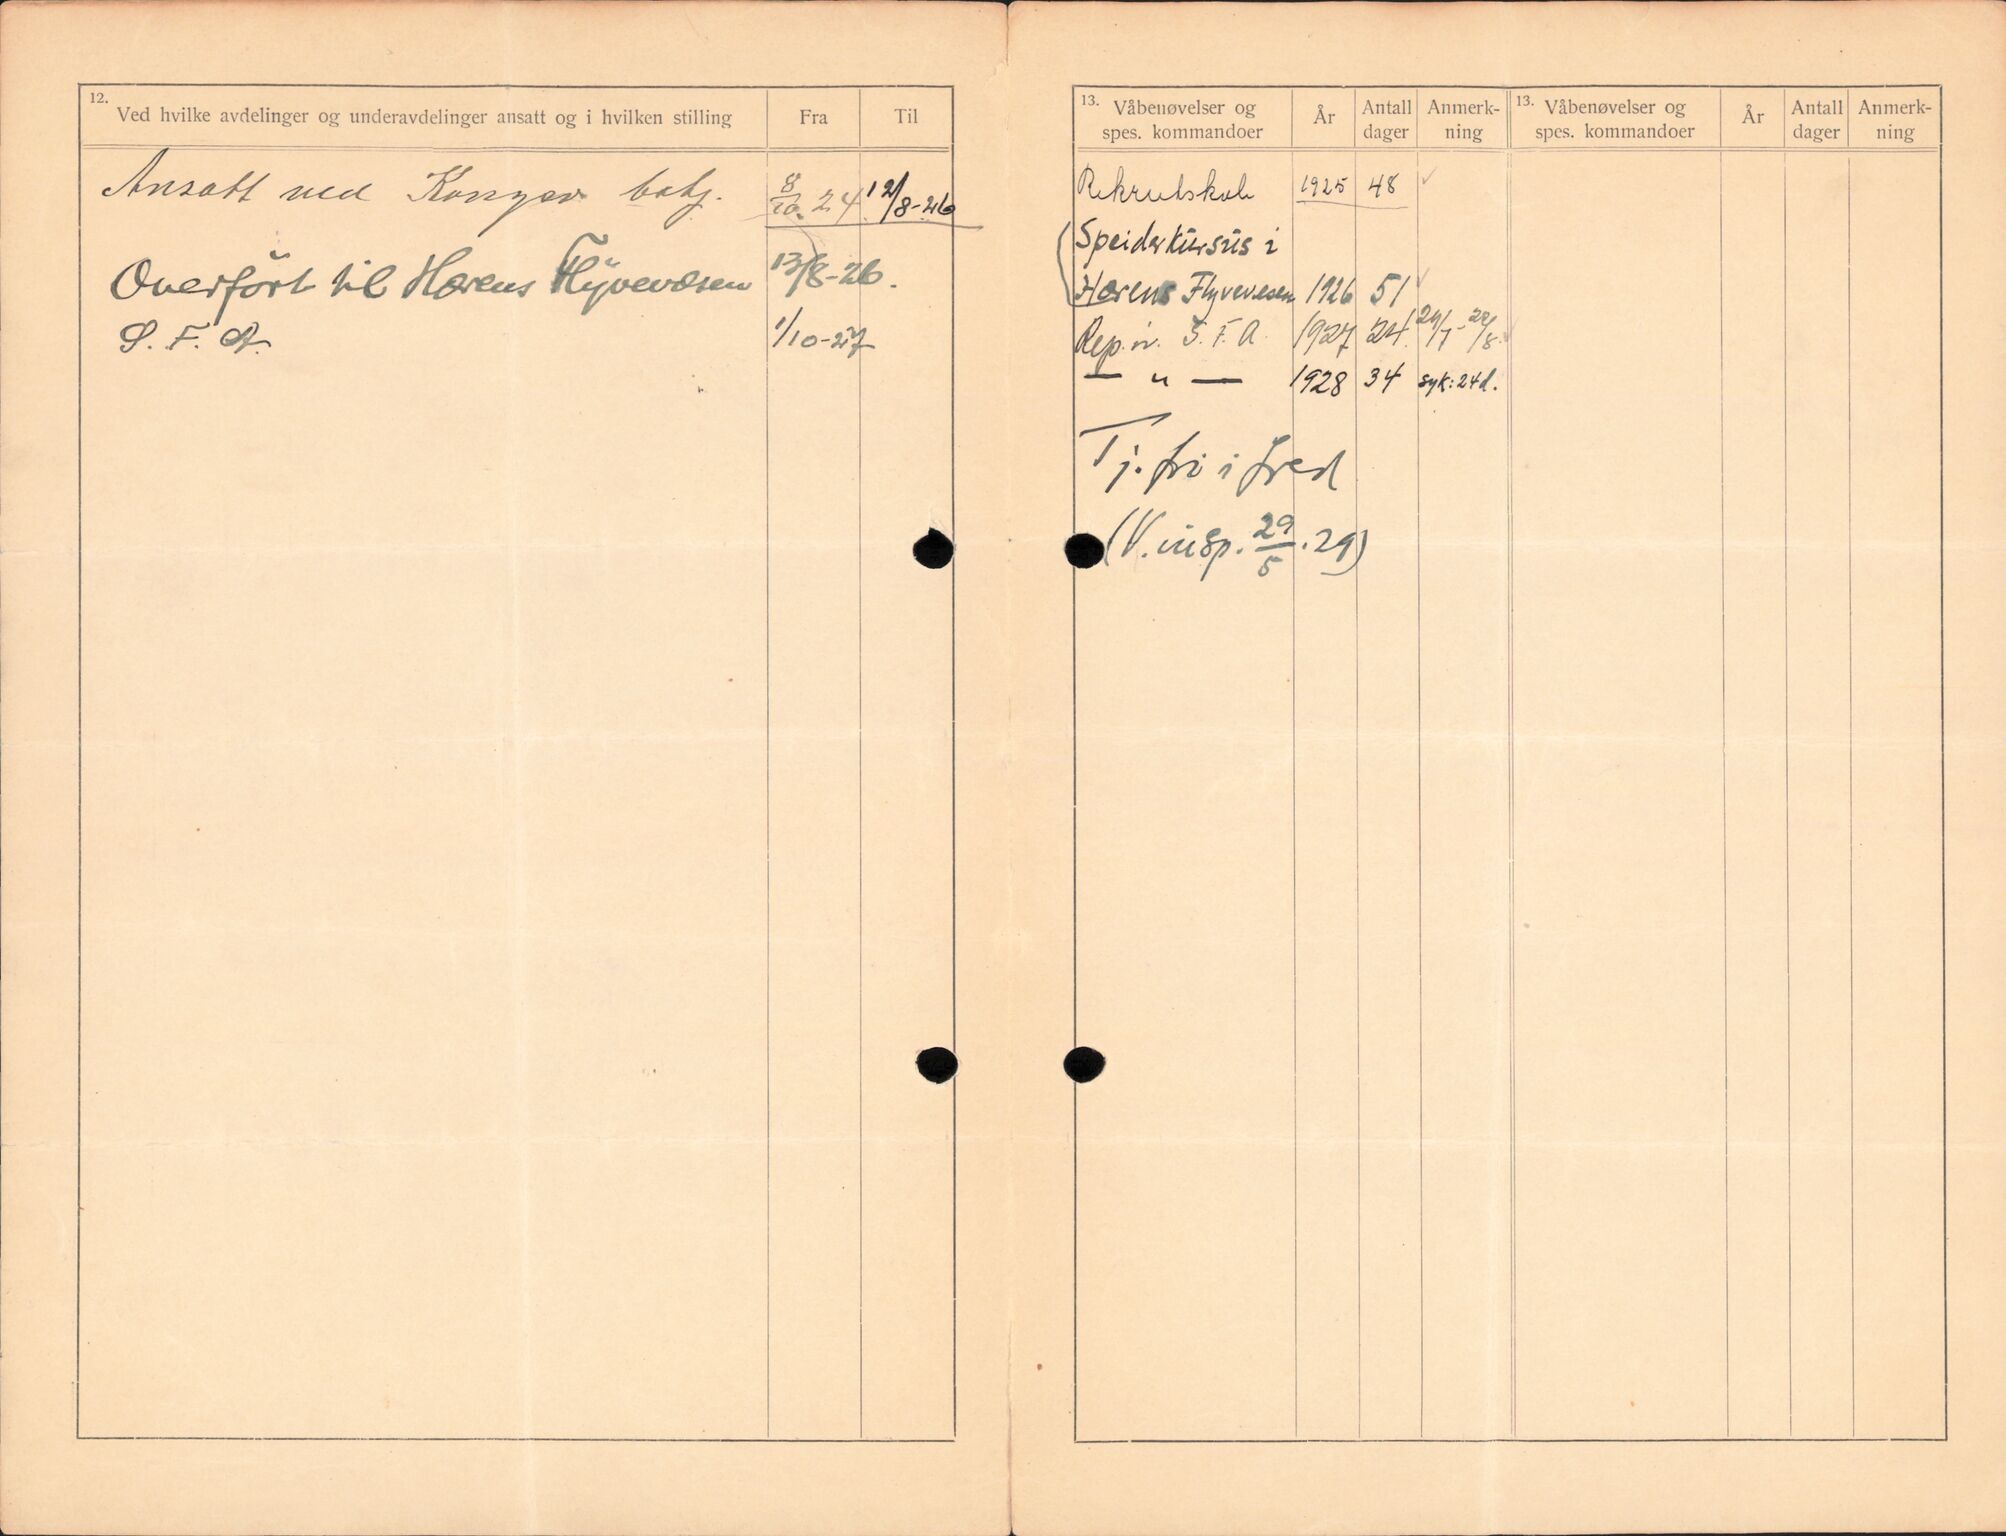 12.
Ved hvilke avdelinger og underavdelinger ansatt og i hvilken stilling Fra Til
Ansatt ved batj. 8/10. 24 12/8-26
Overført til Hærens Flyvevæsen 13/8-26.
S. F. A. 1/10-27
13. Våbenøvelser og spes. kommandoer År Antall dager Anmerk-ning
13. Våbenøvelser og spes. kommandoer År Antall dager Anmerk-ning
Rekrutskole 1925 48 ✓
Speiderkursus i
Hærens Flyvevesen 1926 51 ✓
Rep. v. S. F. A. 1927 24 /7 - /8 ✓
— " — 1928 34 syk: 24 d.
Tj. fri i fred
(V. insp. 29/5. 29)